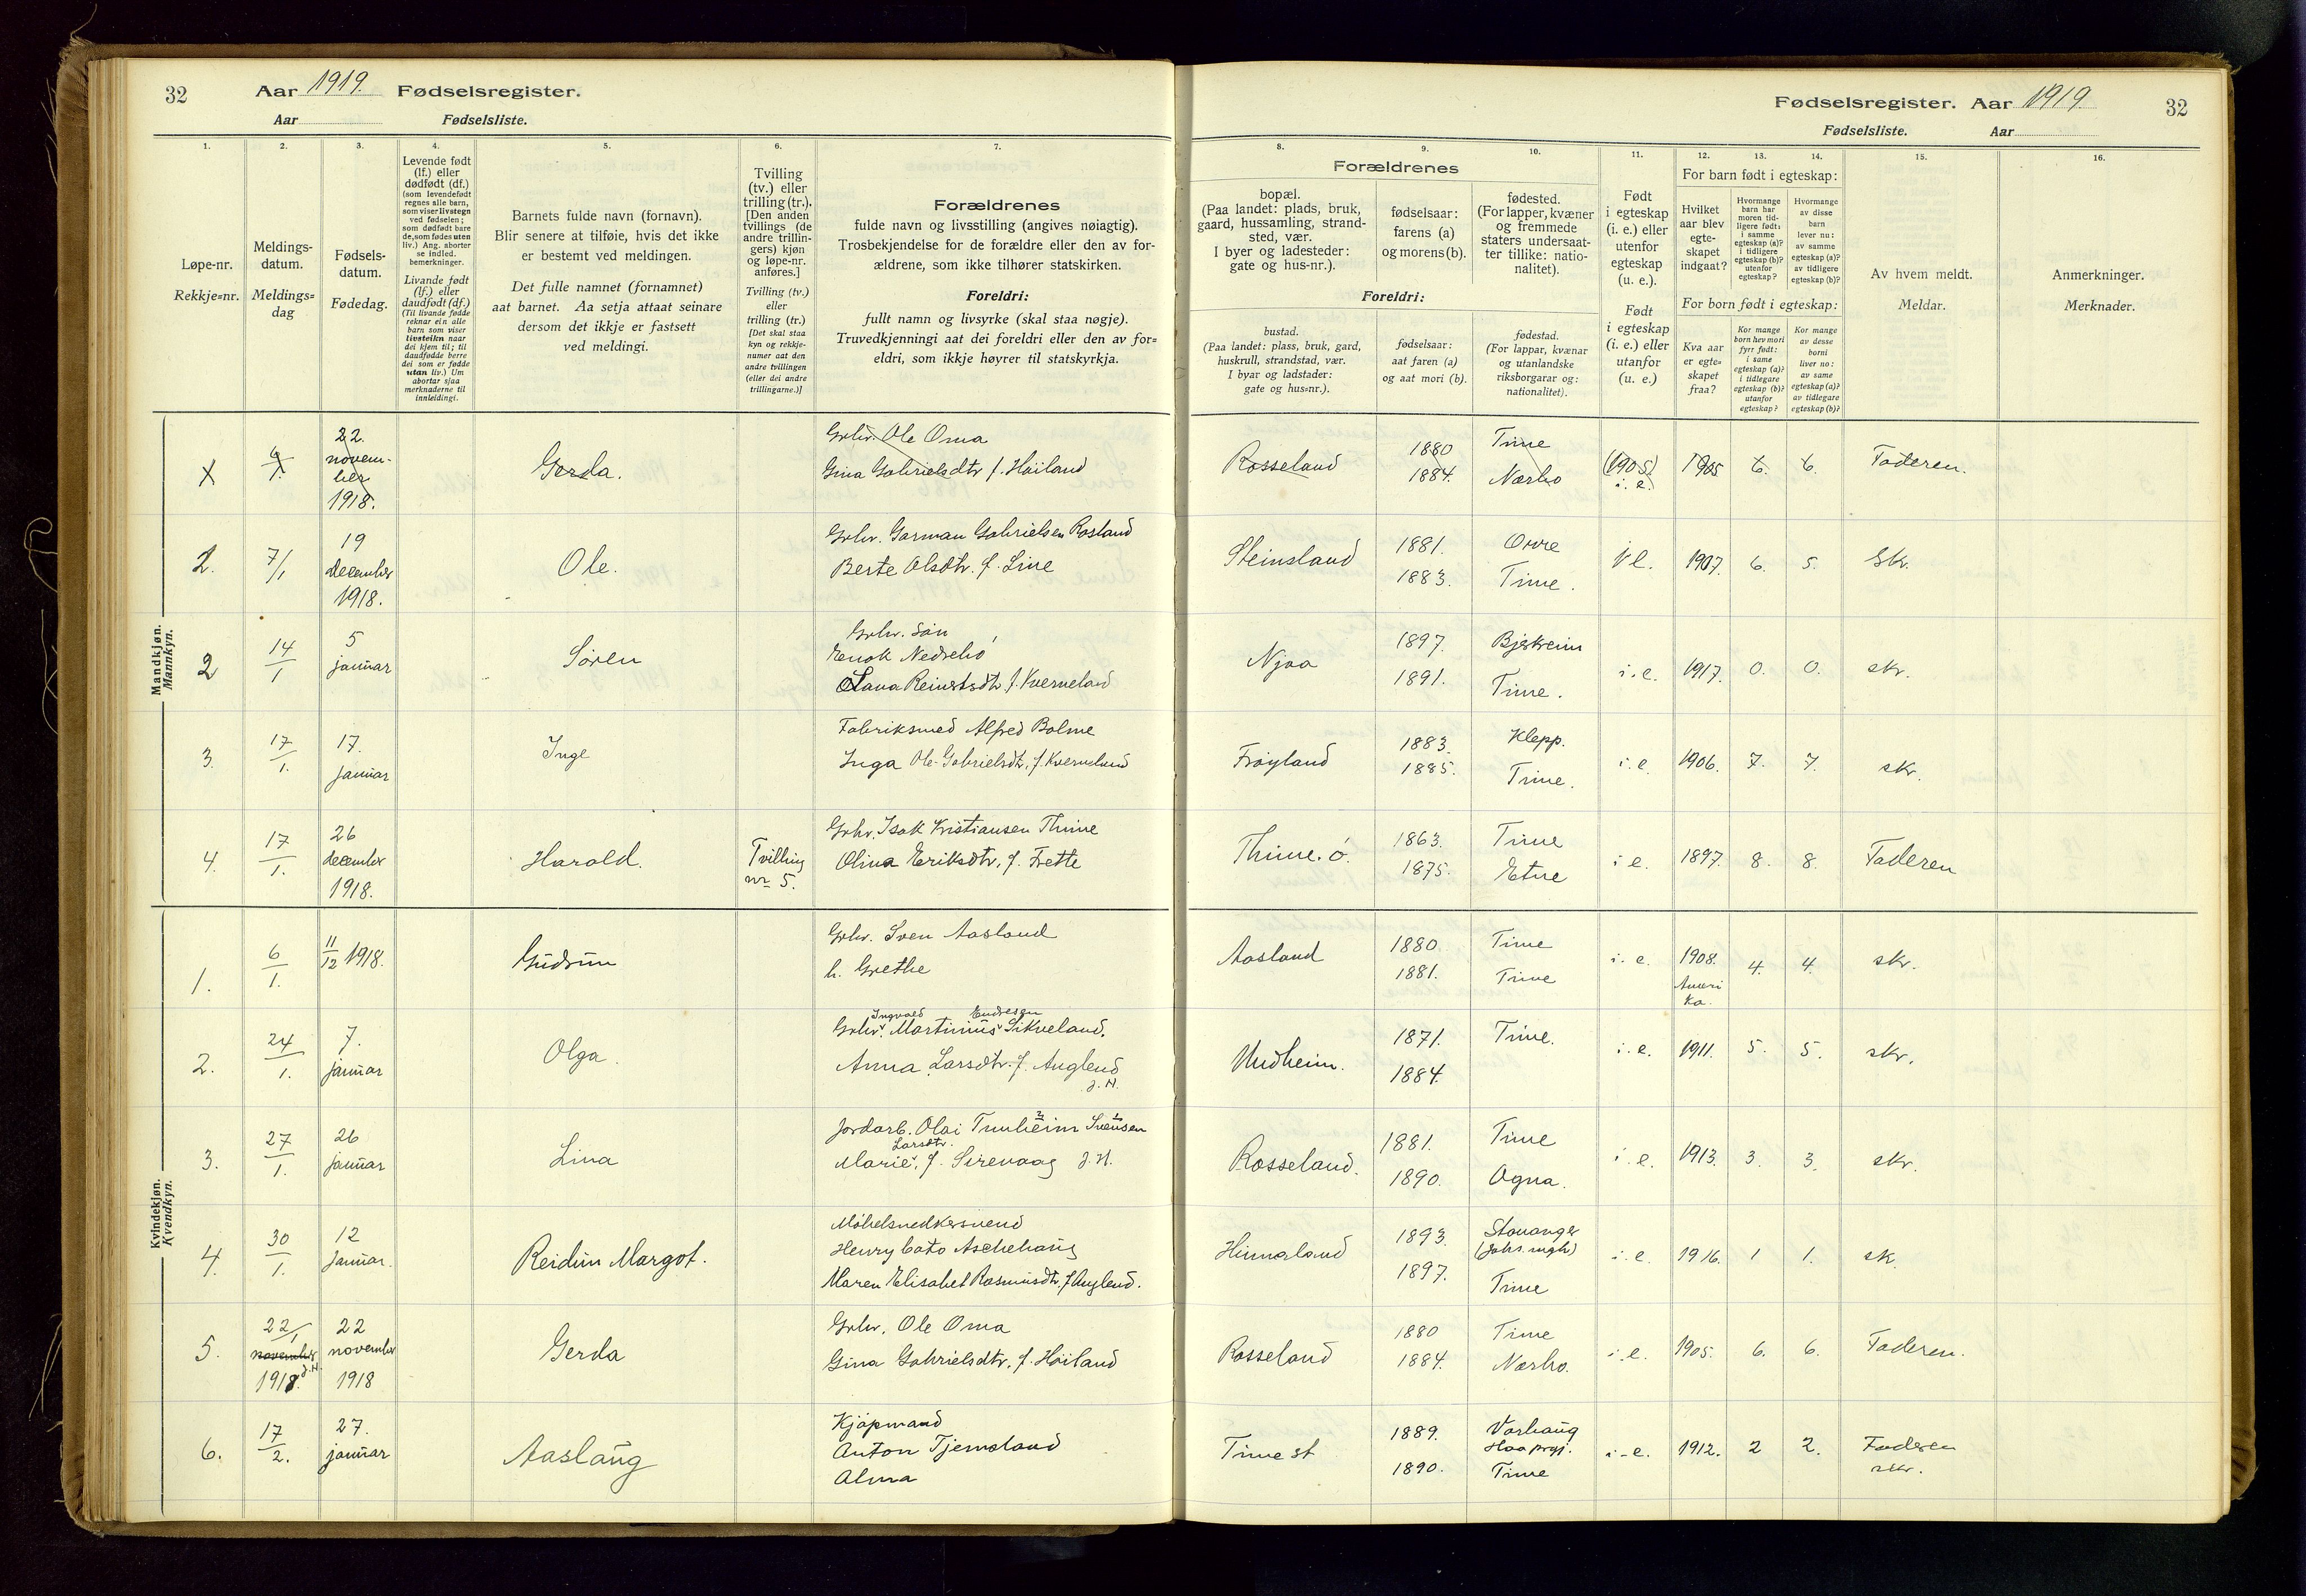 32 Aar 1919. Fødselsregister.
Aar Fødselsliste.
Fødselsregister. Aar 1919 32
Fødselsliste. Aar
1. 2. 3. 4. 5. 6. 7.
Løpe-nr.
Rekkje=nr.
Meldings-
datum.
Meldings=
dag
Fødsels-
datum.
Fødedag.
Levende født
(lf.) eller
dødfødt (df.)
(som levendefødt
regnes alle barn,
som viser livstegn
ved fødselen;
som dødfødt bare
de, som fødes uten
liv.) Ang. aborter
se indled.
bemerkninger.
Livande født
(lf.) eller
daudfødt (df.)
(Til livande fødde
reknar ein alle
barn som viser
livsteikn naar
dei kjem til; til
daudfødde berre
dei som er fødde
utan liv.) Um
abortar sjaa
merknaderne til
innleidingi.
Barnets fulde navn (fornavn).
Blir senere at tilføie, hvis det ikke
er bestemt ved meldingen.
Det fulle namnet (fornamnet)
aat barnet. Aa setja attaat seinare
dersom det ikkje er fastsett
ved meldingi.
Tvilling
(tv.) eller
trilling (tr.).
[Den anden
tvillings (de
andre trillin-
gers) kjøn
og løpe-nr.
anføres.]
Tvilling (tv.)
eller
trilling (tr.)
[Det skal staa
kyn og rekkje-
numer aat den
andre tvillingen
(eller dei andre
trillingarne.)]
Forældrenes
fulde navn og livsstilling (angives nøiagtig).
Trosbekjendelse for de forældre eller den av for-
ældrene, som ikke tilhører statskirken.
Foreldri:
fullt namn og livsyrke (skal staa nøgje).
Truvedkjenningi aat dei foreldri eller den av for=
eldri, som ikkje høyrer til statskyrkja.
8. 9. 10. 11. 12. 13. 14. 15. 16.
Forældrenes
bopæl.
(Paa landet: plads, bruk,
gaard, hussamling, strand-
sted, vær.
I byer og ladesteder:
gate og hus-nr.).
fødselsaar:
farens (a)
og morens (b).
fødested.
(For lapper, kvæner
og fremmede
staters undersaat-
ter tillike: natio-
nalitet).
Foreldri:
bustad.
(Paa landet: plass, bruk, gard,
huskrull, strandstad, vær.
I byar og ladstader:
gate og hus=nr.).
fødselsaar:
aat faren (a)
og aat mori (b).
fødestad.
(For lappar, kvænar
og utanlandske
riksborgarar og:
nationalitet).
Født
i egteskap
(i. e.) eller
utenfor
egteskap
(u. e.).
Født
i egteskap
(i. e.) eller
utanfor
(u. e.)
For barn født i egteskap:
Hvilket
aar blev
egte-
skapet
indgaat?
Hvormange
barn har
moren tid-
ligere født:
i samme
egteskap (a)?
i tidligere
egteskap (b)?
utenfor
egteskap?
Hvormange
av disse
barn
lever nu:
av samme
egteskap (a)?
av tidligere
egteskap (b)?
For born født i egteskap:
Kva aar
er egte=
skapet
fraa?
Kor mange
born hev mori
fyrr født:
i same
egteskap (a)?
i tidlegare
egteskap (b)?
utanfor
egteskap?
Kor mange
av desse
borni
liver no:
av same
egteskap (a)?
av tidlegare
egteskap (b)?
Av hvem meldt.
Meldar.
Anmerkninger.
Merknader.
Mandkjøn.
Mannkyn.
22.
novem-
ber
1918.
Gerda.
Grbr. Ole Oma
Gina Gabrielsdtr f. Høiland
Rosseland 1880 1884. Time Nærbo (1905) i. e. 1905 6. 6. Faderen.
2. 7/1 19 december 1918. Ole.
Grbr. Garman Gabrielsen Rosland
Berte Olsdtr. f. Line
Steinsland 1881. 1883. Orre Time. i e. 1907. 6. 5. Skr.
2 14/1 5 januar Søren
Grbr. Søn
Enok Nedrebø
Olava Reinertsdtr f. Kverneland
Njaa 1897. 1891. Bjerkreim Time. i. e. 1917. 0. 0. skr.
3. 17/1. 17. januar Inge
Fabriksmed Alfred Bolme
Inga Ole-Gabrielsdtr, f. Kverneland
Frøyland 1883. 1885. Klepp. Time. i. e. 1906. 7. 7. skr.
4. 17/1. 26 december 1918. Harald. Tvilling nr 5.
Grbr. Isak Kristiansen Thime
Olina Eriksdtr, f. Frette
Thime. ø. 1863. 1875. Time Etne i e. 1897. 8. 8. Faderen
Kvindekjøn.
Kvendkyn.
1. 6/1. 11/12 1918. Gudrun
Grbr. Sven Aasland
h. Grethe
Aasland 1880. 1881. Time Time i. e. 1908. Ameri ka. 4. 4. skr.
2. 24/1. 7. januar Olga.
Ingvald Endresen
Grbr. Martinius Sikveland.
Anna Larsdtr. f. Auglend
J. H.
Undheim. 1871. 1884. Time. i. e. 1911. 5. 5. skr.
3. 27/1. 26 januar Lina
Jordarb. Olai Tunheim Svensen
Larsdtr.
Marie, f. Sirevaag J. H.
Rosseland. 1881. 1890. Time Ogna. i. e. 1913. 3. 3. skr.
4. 30/1. 12 januar. Reidun Margot.
Møbelsnedkersvend
Henry Cato Aschehaug
Maren Elisabet Rasmusdtr, f Auglend.
Hinnaland 1893. 1897. Stavanger Time i. e. 1916. 1 1. sk.
5. 22/1 november 1919. J. H. 22 november 1918 Gerda
Grbr. Ole Oma
Gina Gabrielsdtr, f. Høiland
Rosseland 1880 1884. Time Nærbo. i. e. 1905. 6. 6. Faderen.
6. 17/2. 27. januar Aaslaug
Kjøpmand
Anton Tjemsland
Alma
Time st 1889. 1890. Varhaug Haa prgj. Time i-e. 1912. 2 2. Faderen skr.